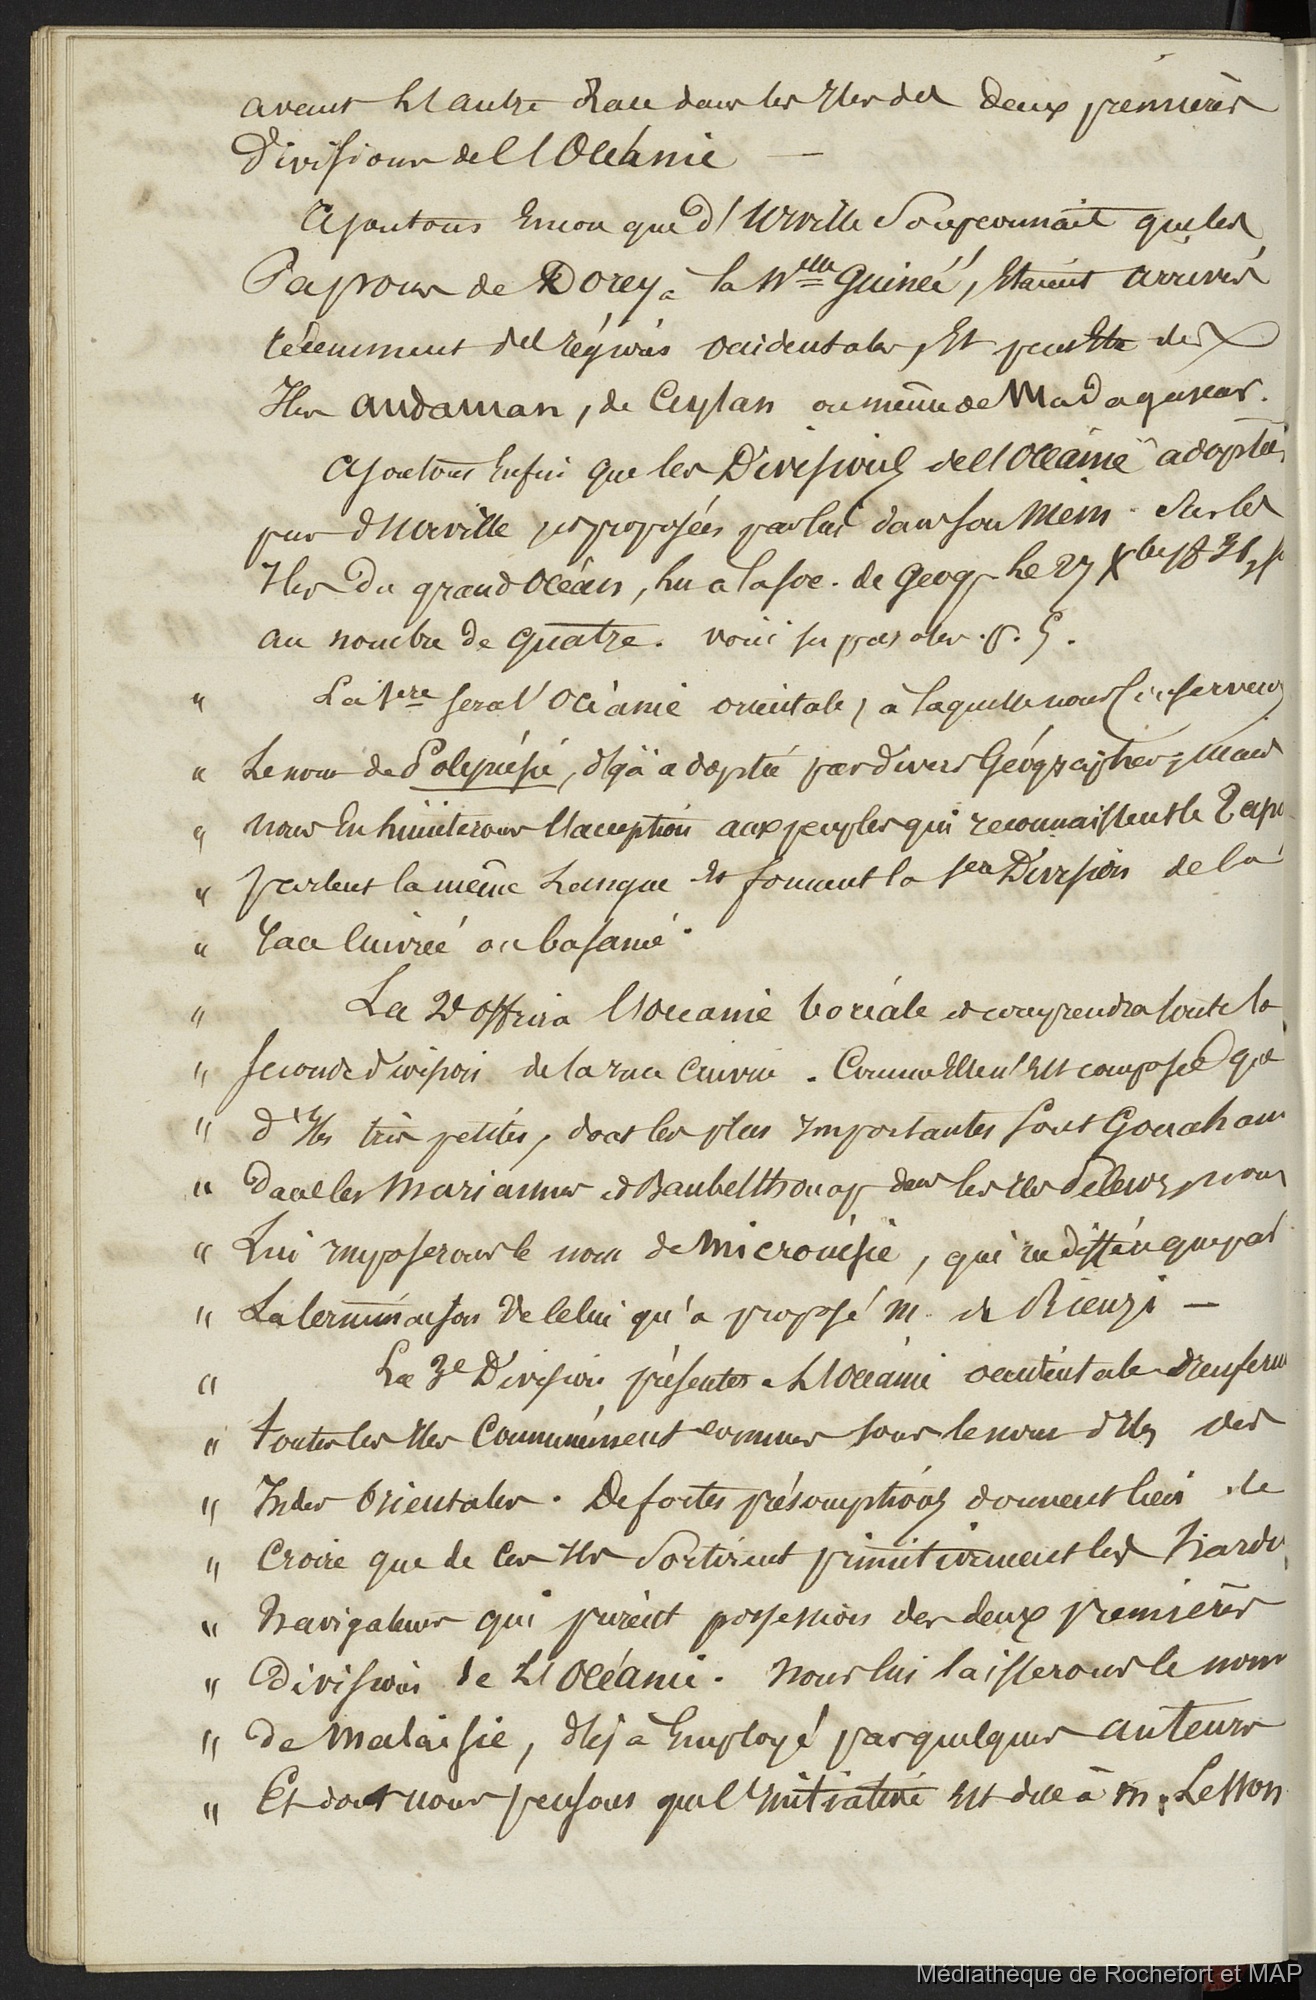 avant l'autre Race dans les Iles des deux premières
Divisions de l'Océanie —
Ajoutons Encore que d'Urville Soupçonnait que les
Papous de Dorey à la Nlle Guinée, étaient arrivés
récemment des régions occidentales, et peut être des
Iles andaman, de Ceylan ou même de Madagascar.
ajoutons enfin que les Divisions de l'Océanie adoptées
par d'Urville et proposées par lui dans son Mém. Sur les
Iles du grand Océan, lu a la soc. de Géog. le 27 Xbre 1831,
au nombre de quatre. voici ses paroles. p. 5.
" La 1ere sera l'Océanie orientale, à laquelle nous conserverons
" Le nom de Polynésie, déjà adopté par divers Géographes; mais
" nous en limiterons l'acception aux peuples qui reconnaissent le Tapu
" parlent la même Langue et forment la 1ere Division de la
" race Cuivrée ou basanée.
" La 2e offrira l'Océanie boréale et comprendra toute la
" seconde division de la race cuivrée. Comme elle n'est composée que
" d'Iles très petites, dont les plus importantes sont Gouaham
" dans les Mariannes et Baubelthouap dans les Iles Pelew, nous
" Lui imposerons le nom de Micronésie, qui ne diffère que par
" La terminaison de celui qu'a proposé M. de Rienzi —
" La 3e Division présentera l'Océanie occidentale et renferme
" toutes les Iles Communément connues sous le nom d'Iles des
" Indes Orientales. De fortes présomptions donnent lieu de
" Croire que de ces Iles Sortirent primitivement les hardis
" Navigateurs qui prirent possession des deux premières
" divisions de L'Océanie. Nous lui laisserons le nom
" de Malaisie, déjà Employé par quelques auteurs
" Et dont nous pensons que l'Initiative est due à M. Lesson
Médiathèque de Rochefort et MAP